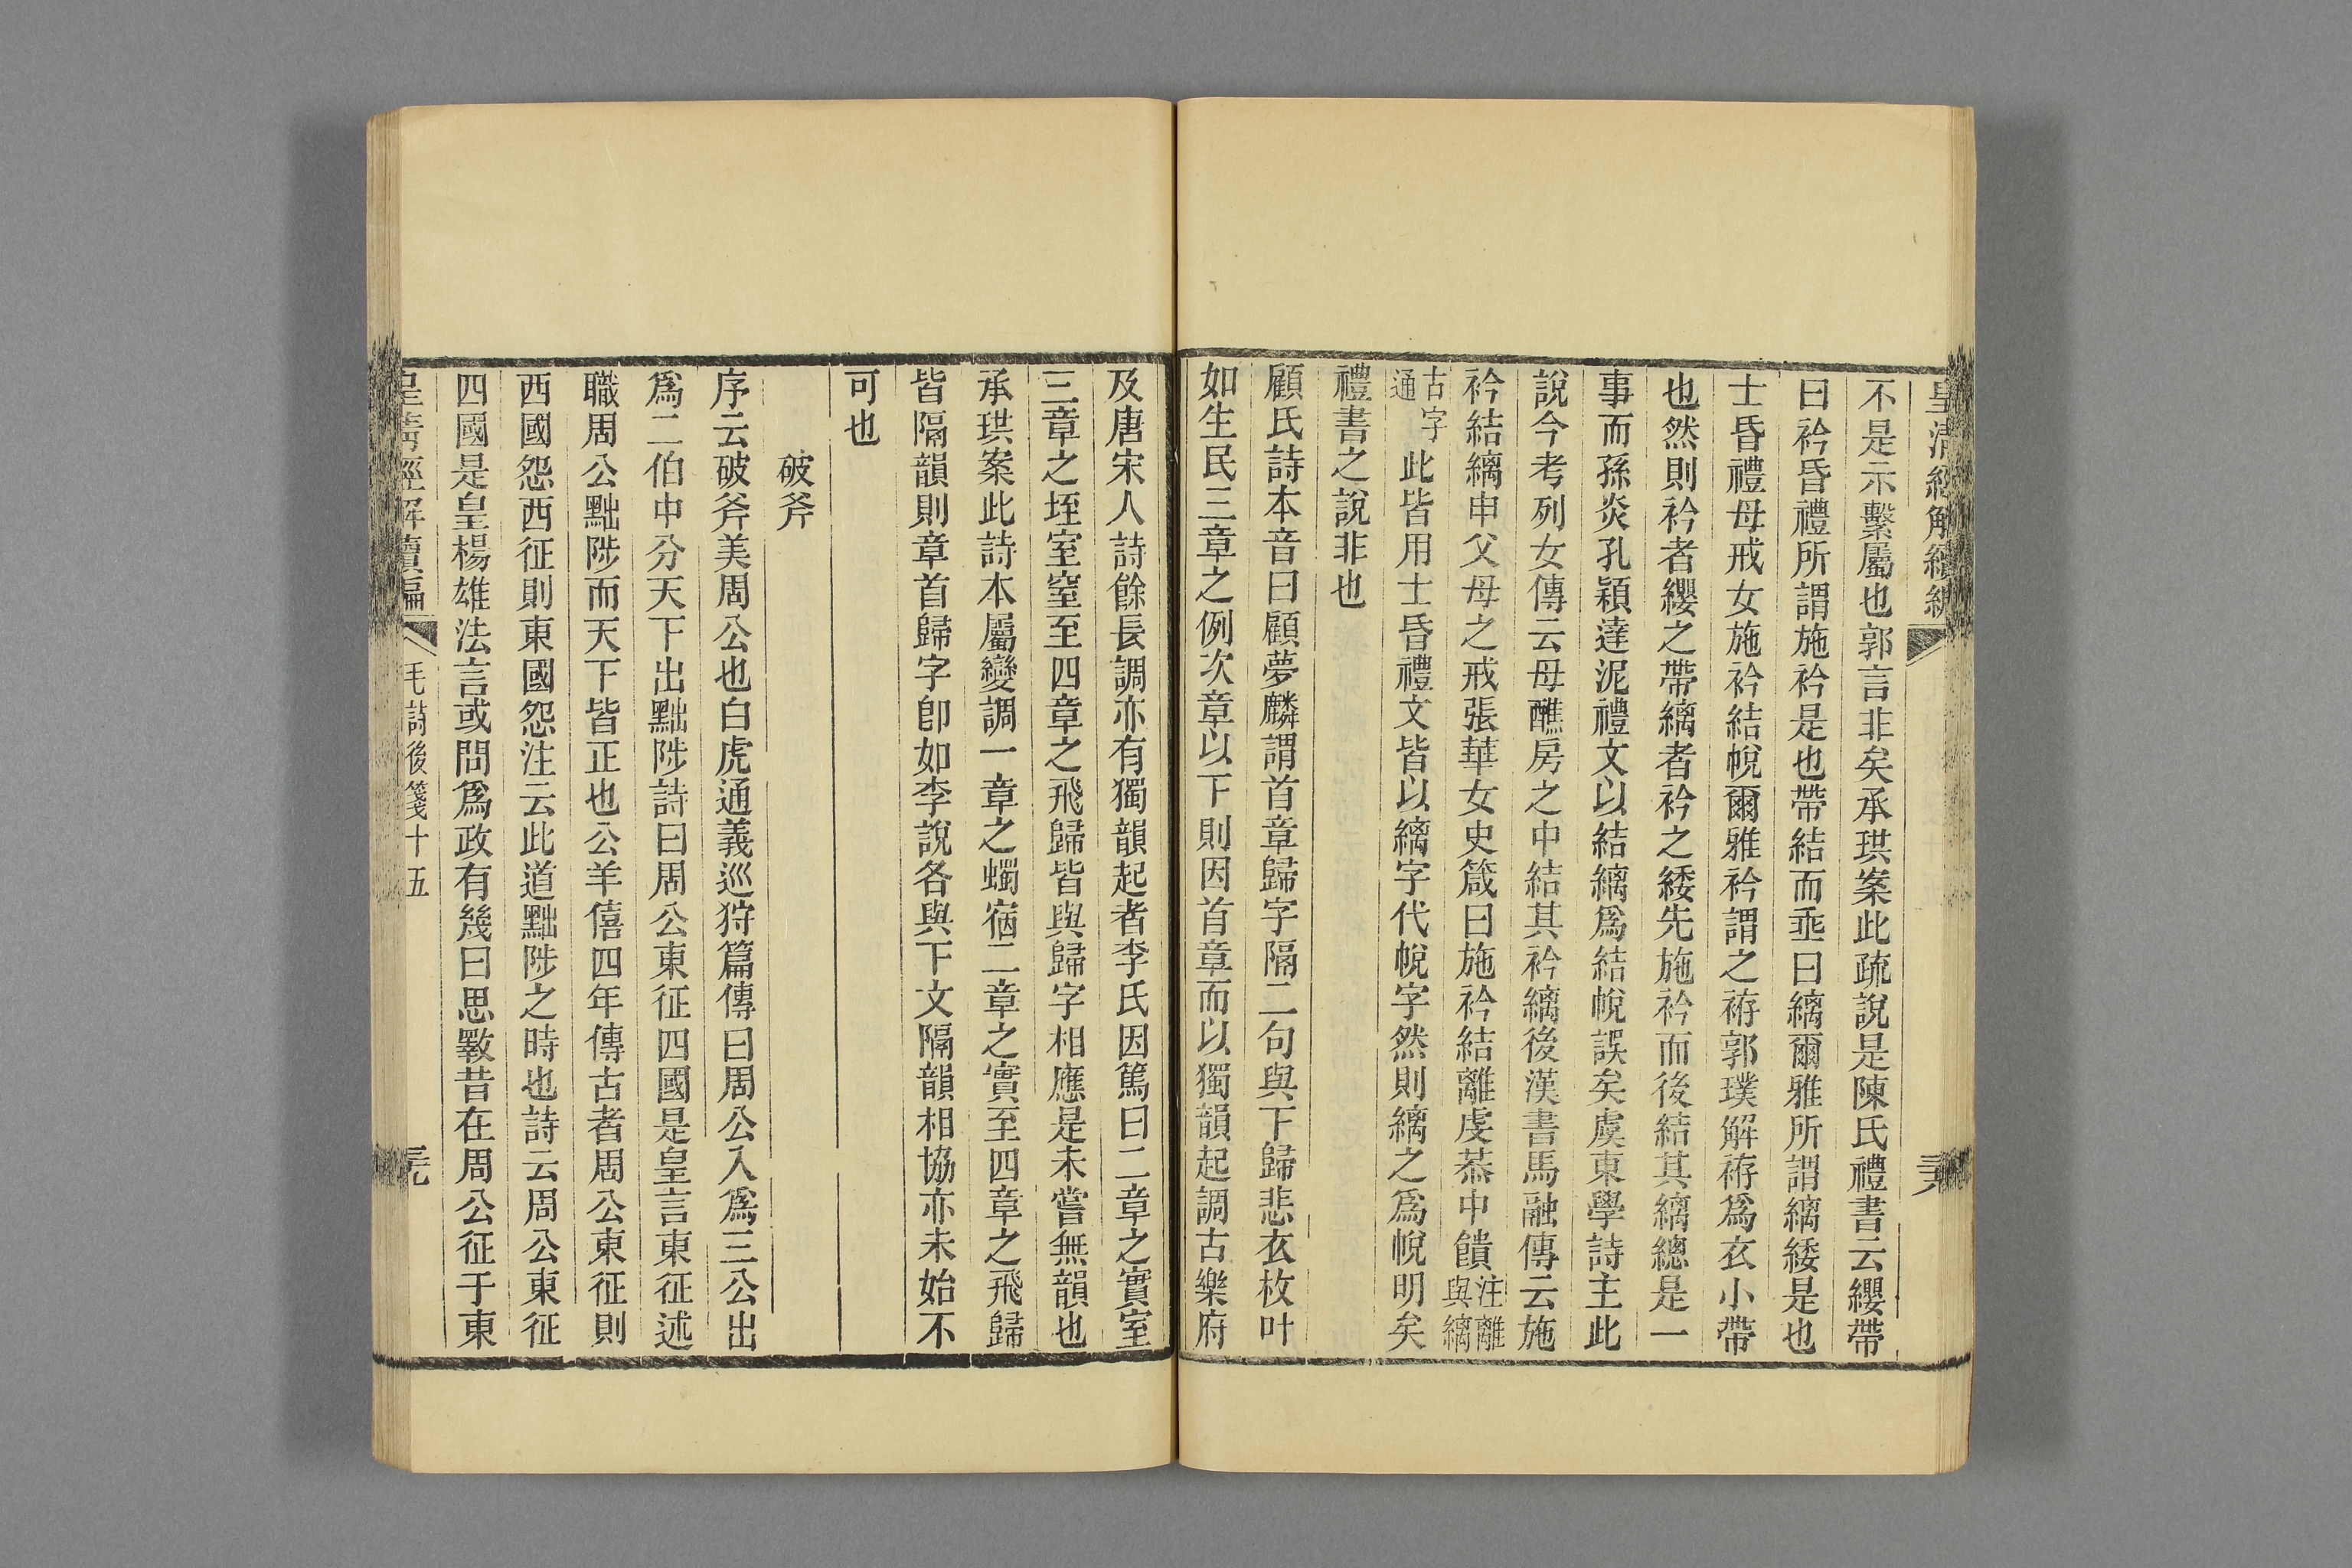 皇清經解續編
不是示繫屬也郭言非矣承珙案此疏說是陳氏禮書云纓帶
曰衿昏禮所謂施衿是也帶結而垂曰縭爾雅所謂縭緌是也
士昏禮母戒女施衿結帨爾雅衿謂之袸郭璞解袸爲衣小帶
也然則衿者纓之帶縭者衿之緌先施衿而後結其縭總是一
事而孫炎孔穎達泥禮文以結縭爲結帨誤矣虞東學詩主此
說今考列女傳云母醮房之中結其衿縭後漢書馬融傳云施
衿結縭申父母之戒張華女史箴曰施衿結離虔恭中饋注離與縭
古字通此皆用士昏禮文皆以縭字代帨字然則縭之爲帨明矣
禮書之說非也
顧氏詩本音曰顧夢麟謂首章歸字隔二句與下歸悲衣枚叶
如生民三章之例次章以下則因首章而以獨韻起調古樂府
及唐宋人詩餘長調亦有獨韻起者李氏因篤曰二章之實室
三章之垤室窒至四章之飛歸皆與歸字相應是未嘗無韻也
承珙案此詩本屬變調一章之蠋宿二章之實至四章之飛歸
皆隔韻則章首歸字卽如李說各與下文隔韻相協亦未始不
可也
破斧
序云破斧美周公也白虎通義巡狩篇傳曰周公入爲三公出
爲二伯中分天下出黜陟詩曰周公東征四國是皇言東征述
職周公黜陟而天下皆正也公羊僖四年傳古者周公東征則
西國怨西征則東國怨注云此道黜陟之時也詩云周公東征
四國是皇楊雄法言或問爲政有幾曰思斁昔在周公征于東
皇淸經解續編 毛詩後箋十五